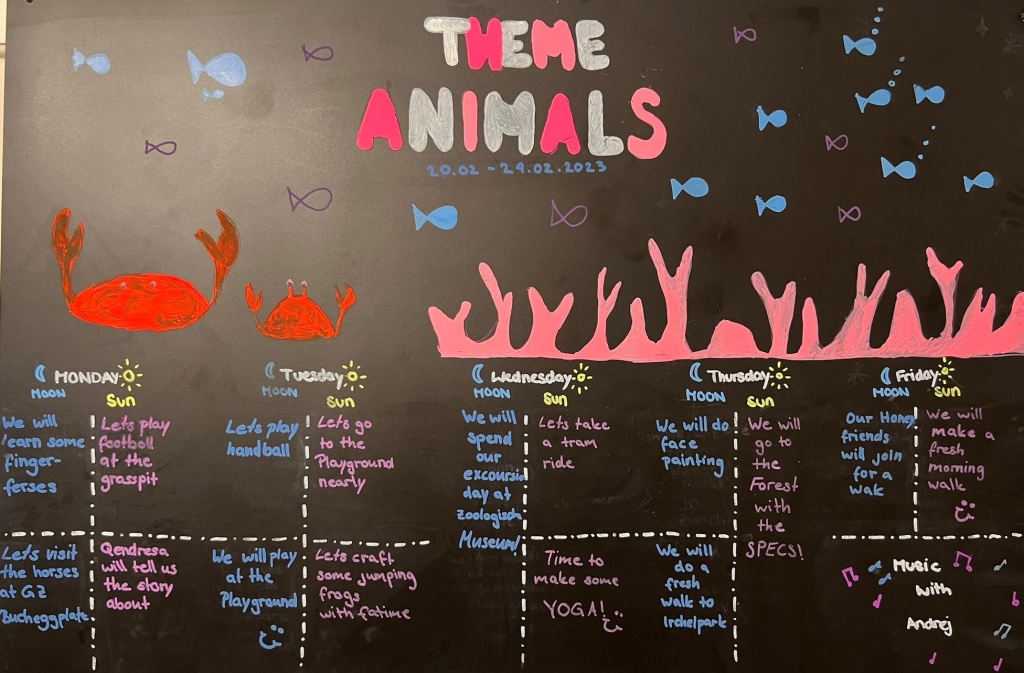 THEME
ANIMALS
20.02 - 24.02.2023
MONDAY
MOON
Sun
We will
learn some
finger-
ferses
Let's play
football
at the
grasspit
Let's visit
the horses
at GZ
Bucheggplatz
Qendresa
will tell us
the story
about
Tuesday
MOON
SUN
Let's play
handball
Let's go
to the
Playground
nearly
We will play
at the
Playground
Let's craft
some jumping
frogs
with fatime
Wednesday
MOON
SUN
We will
spend
our
excoursion
day at
Zoologisch
Museum!
Lets take
a tram
ride
Time to
make some
YOGA!
Thursday
MOON
SUN
We will do
face
painting
We will
go to
the
Forest
with
the
SPECS!
We will
do a
fresh
walk to
Irchelpark
Friday
MOON
SUN
Our Honey
friends
will join
for a
walk
We will
make a
fresh
morning
walk
Music
with
Andrej